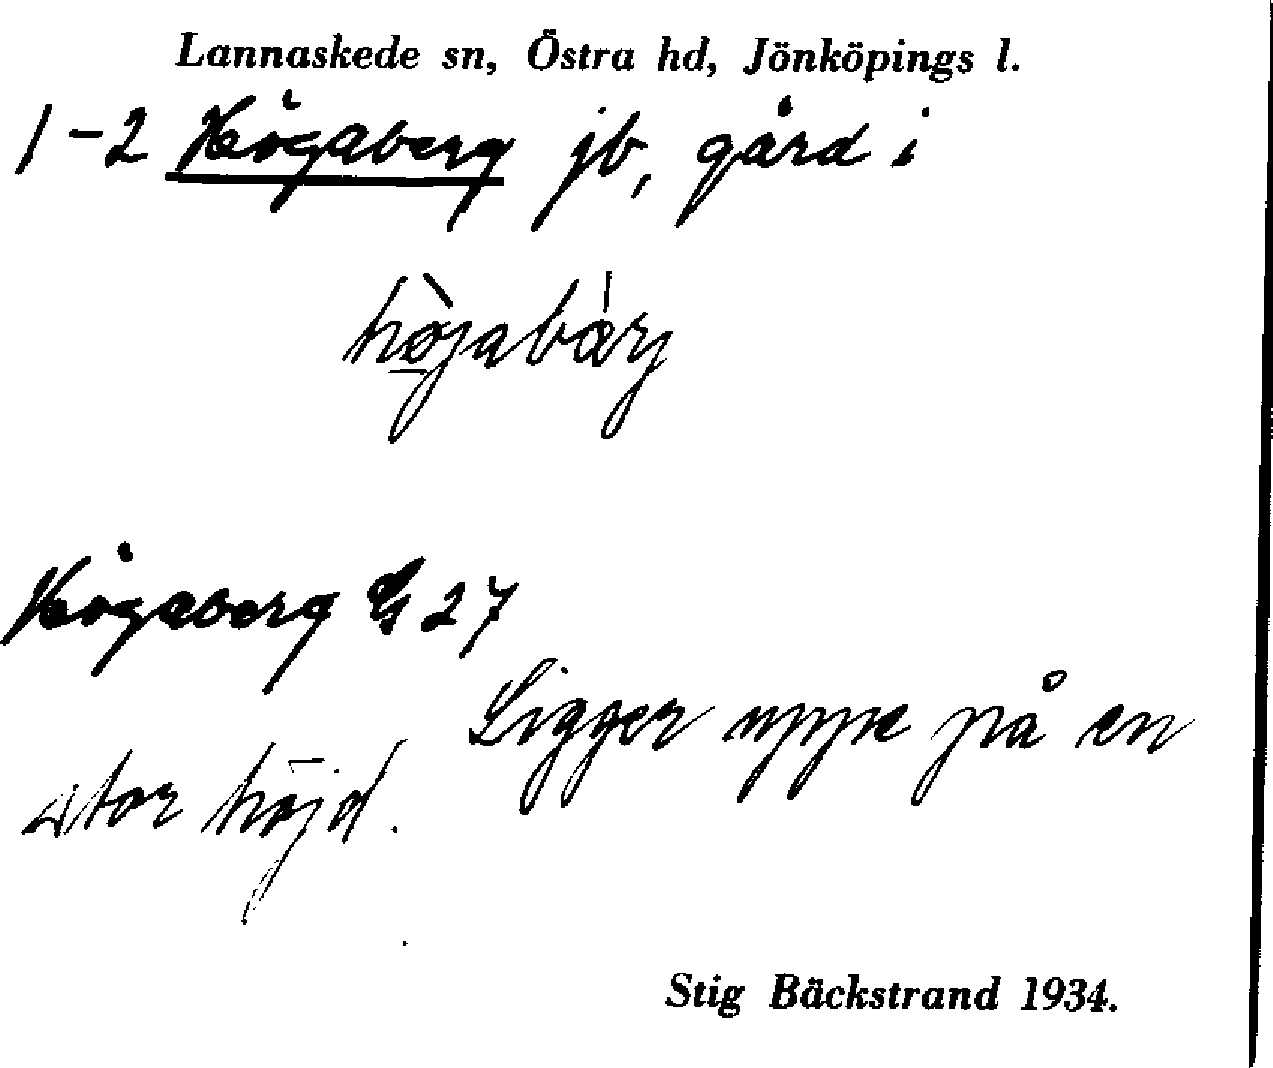 Lannaskede sn, Östra hd, Jönköpings l.
1-2 Högaberg jb, gård i
hö̀jabǽrj
Högaberg 27
Ligger uppe på en
stor höjd.
Stig Bäckstrand 1934.